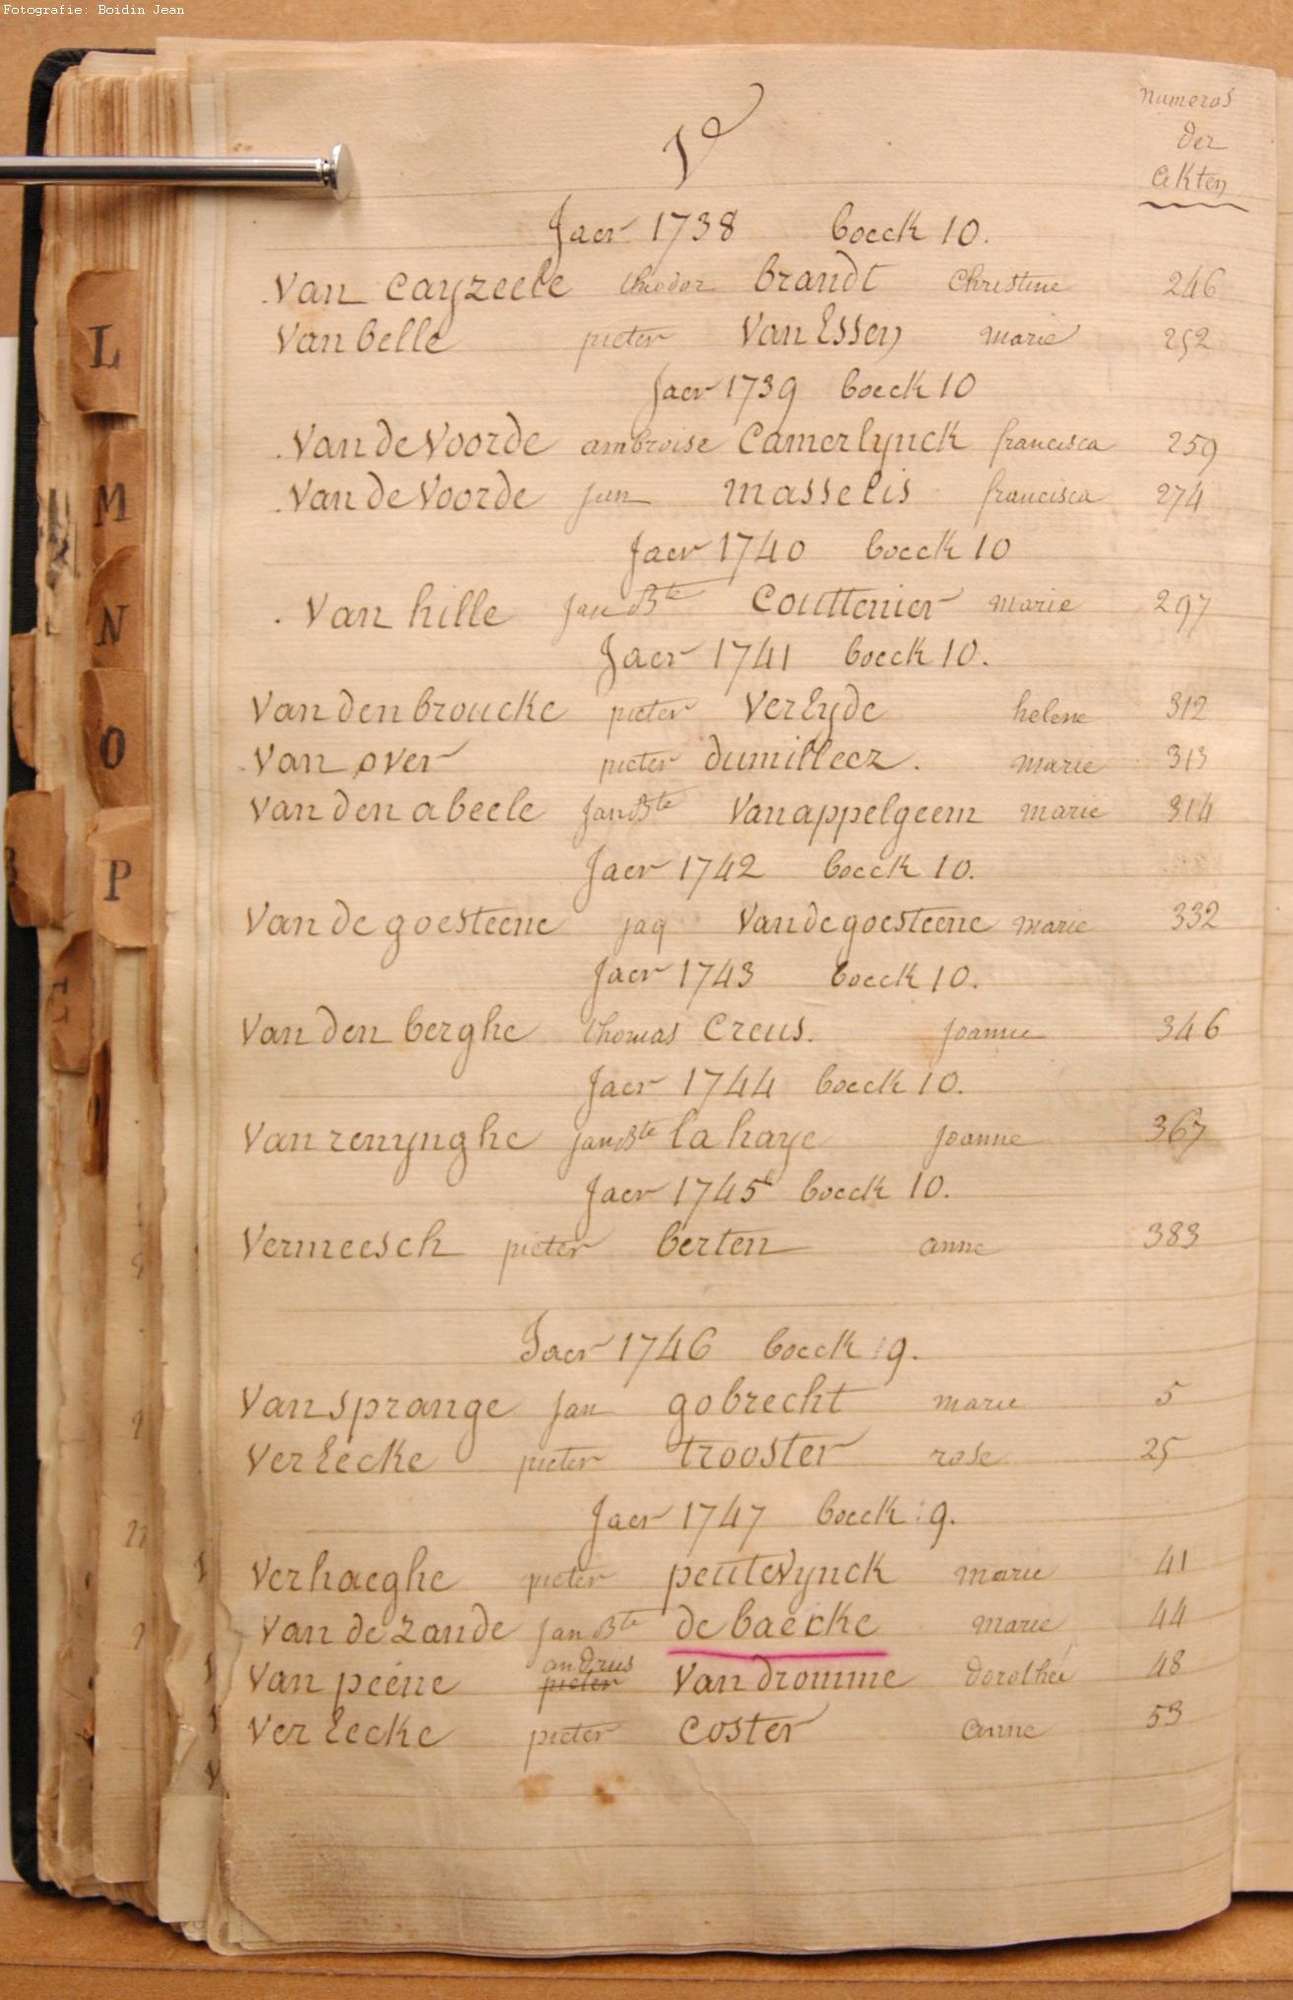 Fotografie: Boidin Jean
V
numeros
der
akten
Jaer 1738 boeck 10.
Van Cayzeele theodor brandt Christine 246
Van belle pieter Van Essen marie 252
Jaer 1739 boeck 10
Van de Voorde ambroise Camerlynck francisca 259
Van de Voorde jan masselis francisca 274
Jaer 1740 boeck 10
Van hille jan Bte Couttenier marie 297
Jaer 1741 boeck 10.
Van den broucke pieter Verleyde helene 312
Van over pieter dumilleez. marie 313
Van den abeele jan Bte Van appelgeem marie 314
Jaer 1742 boeck 10.
Van de goesteene jaq Van de goesteene marie 332
Jaer 1743 boeck 10.
Van den berghe thomas Creus. joanne 346
Jaer 1744 boeck 10.
Van renynghe jan Bte la haye joanne 367
Jaer 1745 boeck 10.
Vermeesch pieter berten anne 383
Jaer 1746 boeck 9.
Van sprange jan gobrecht marie 5
Verlecke pieter trooster rose 25
Jaer 1747 boeck : 9.
Verhaeghe pieter peutevynck marie 41
Van de zande jan Bte de baecke marie 44
andries
Van peéne pieter Van dromme dorothée 48
Verlecke pieter coster anne 53
L
M
N
O
P